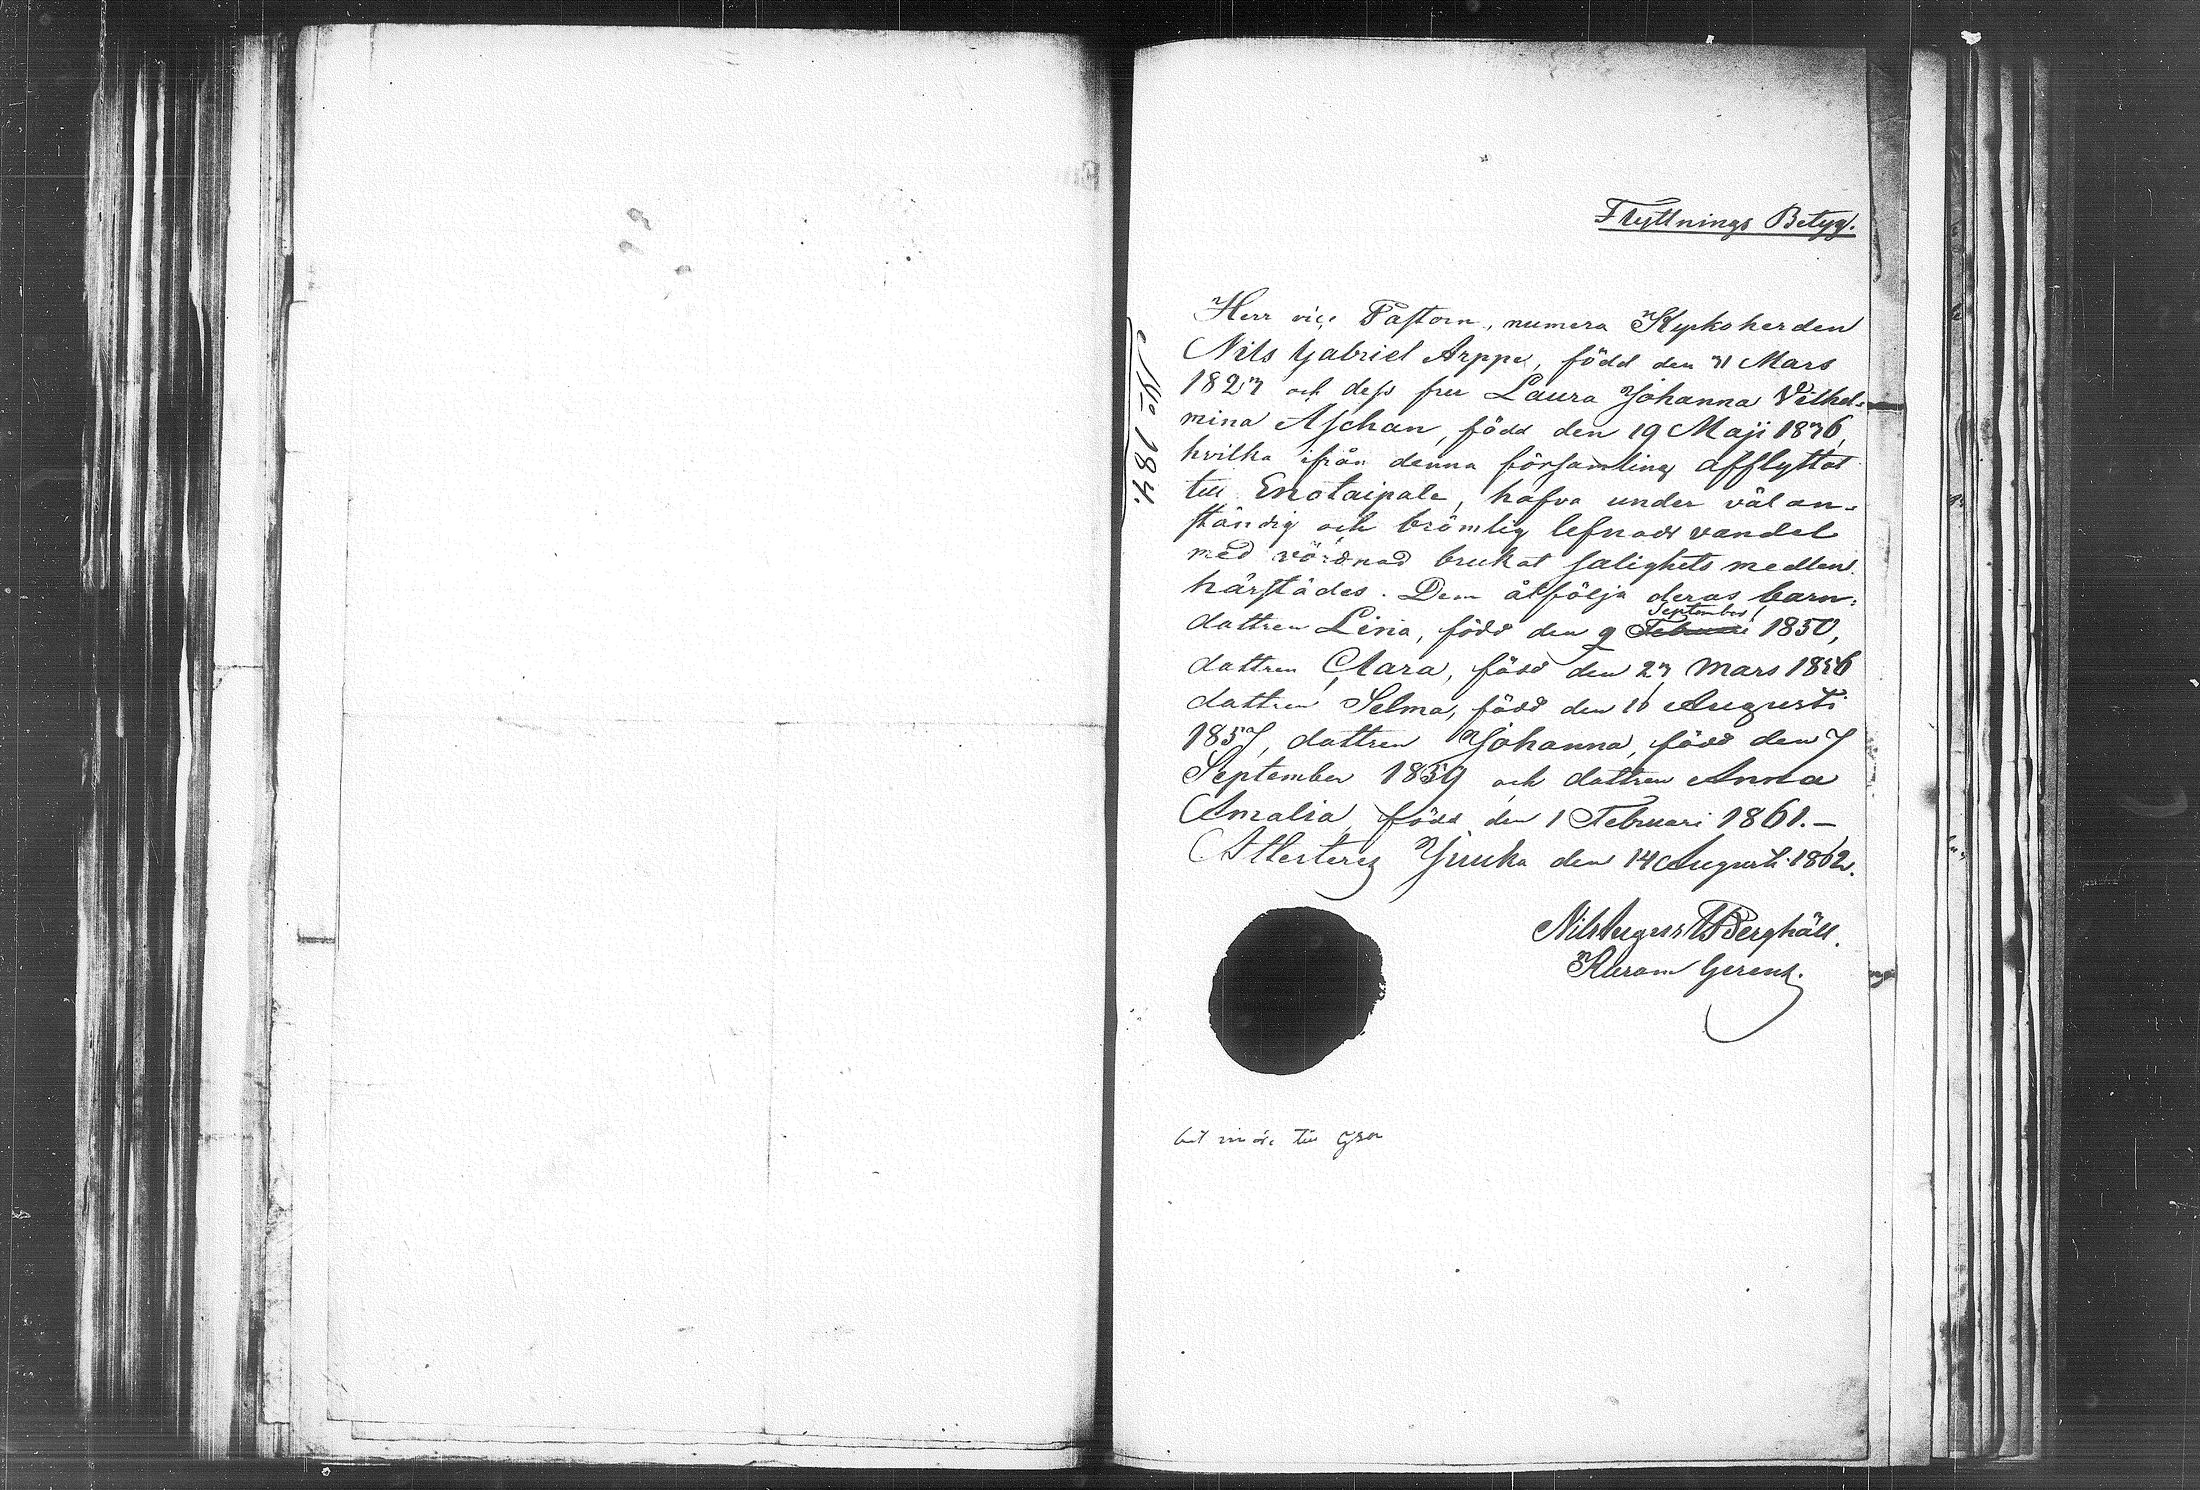 Flyttnings Betyg.
No 184.
Herr vice Pastorn, numera Kyrkoherden
Nils Gabriel Arppe, född den 31 Mars
1823 och dess fru Laura Johanna Vilhel-
mina Aschan, född den 19 Maji 1836,
hvilka ifrån denna församling afflyttat
till Enotaipale, hafva under väl an-
ständig och brömlig lefnads vandel
med vördnad brukat salighets medlen
härstädes. Dem åtfölja deras barn:
dottren Lina, född den 9 Februari September! 1850,
dottren Clara, född den 23 Mars 1856
dottren Selma, född den 16 Augusti
1857, dottren Johanna, född den 7
September 1859 och dottren Anna
Amalia, född den 1 Februari 1861.—
Attesterez Juuka den 14 Augusti 1862.
Nils August Berghäll.
Kuram Gerens.